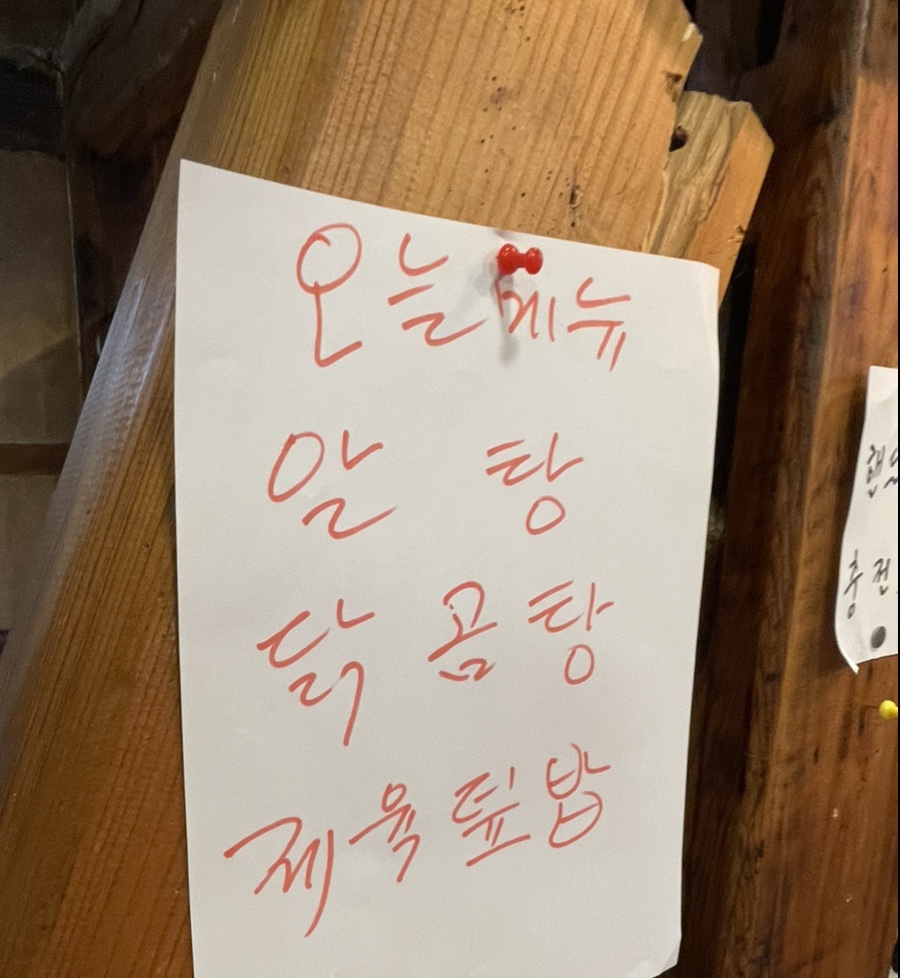 오늘메뉴
알 탕
닭 곰 탕
제육덮밥